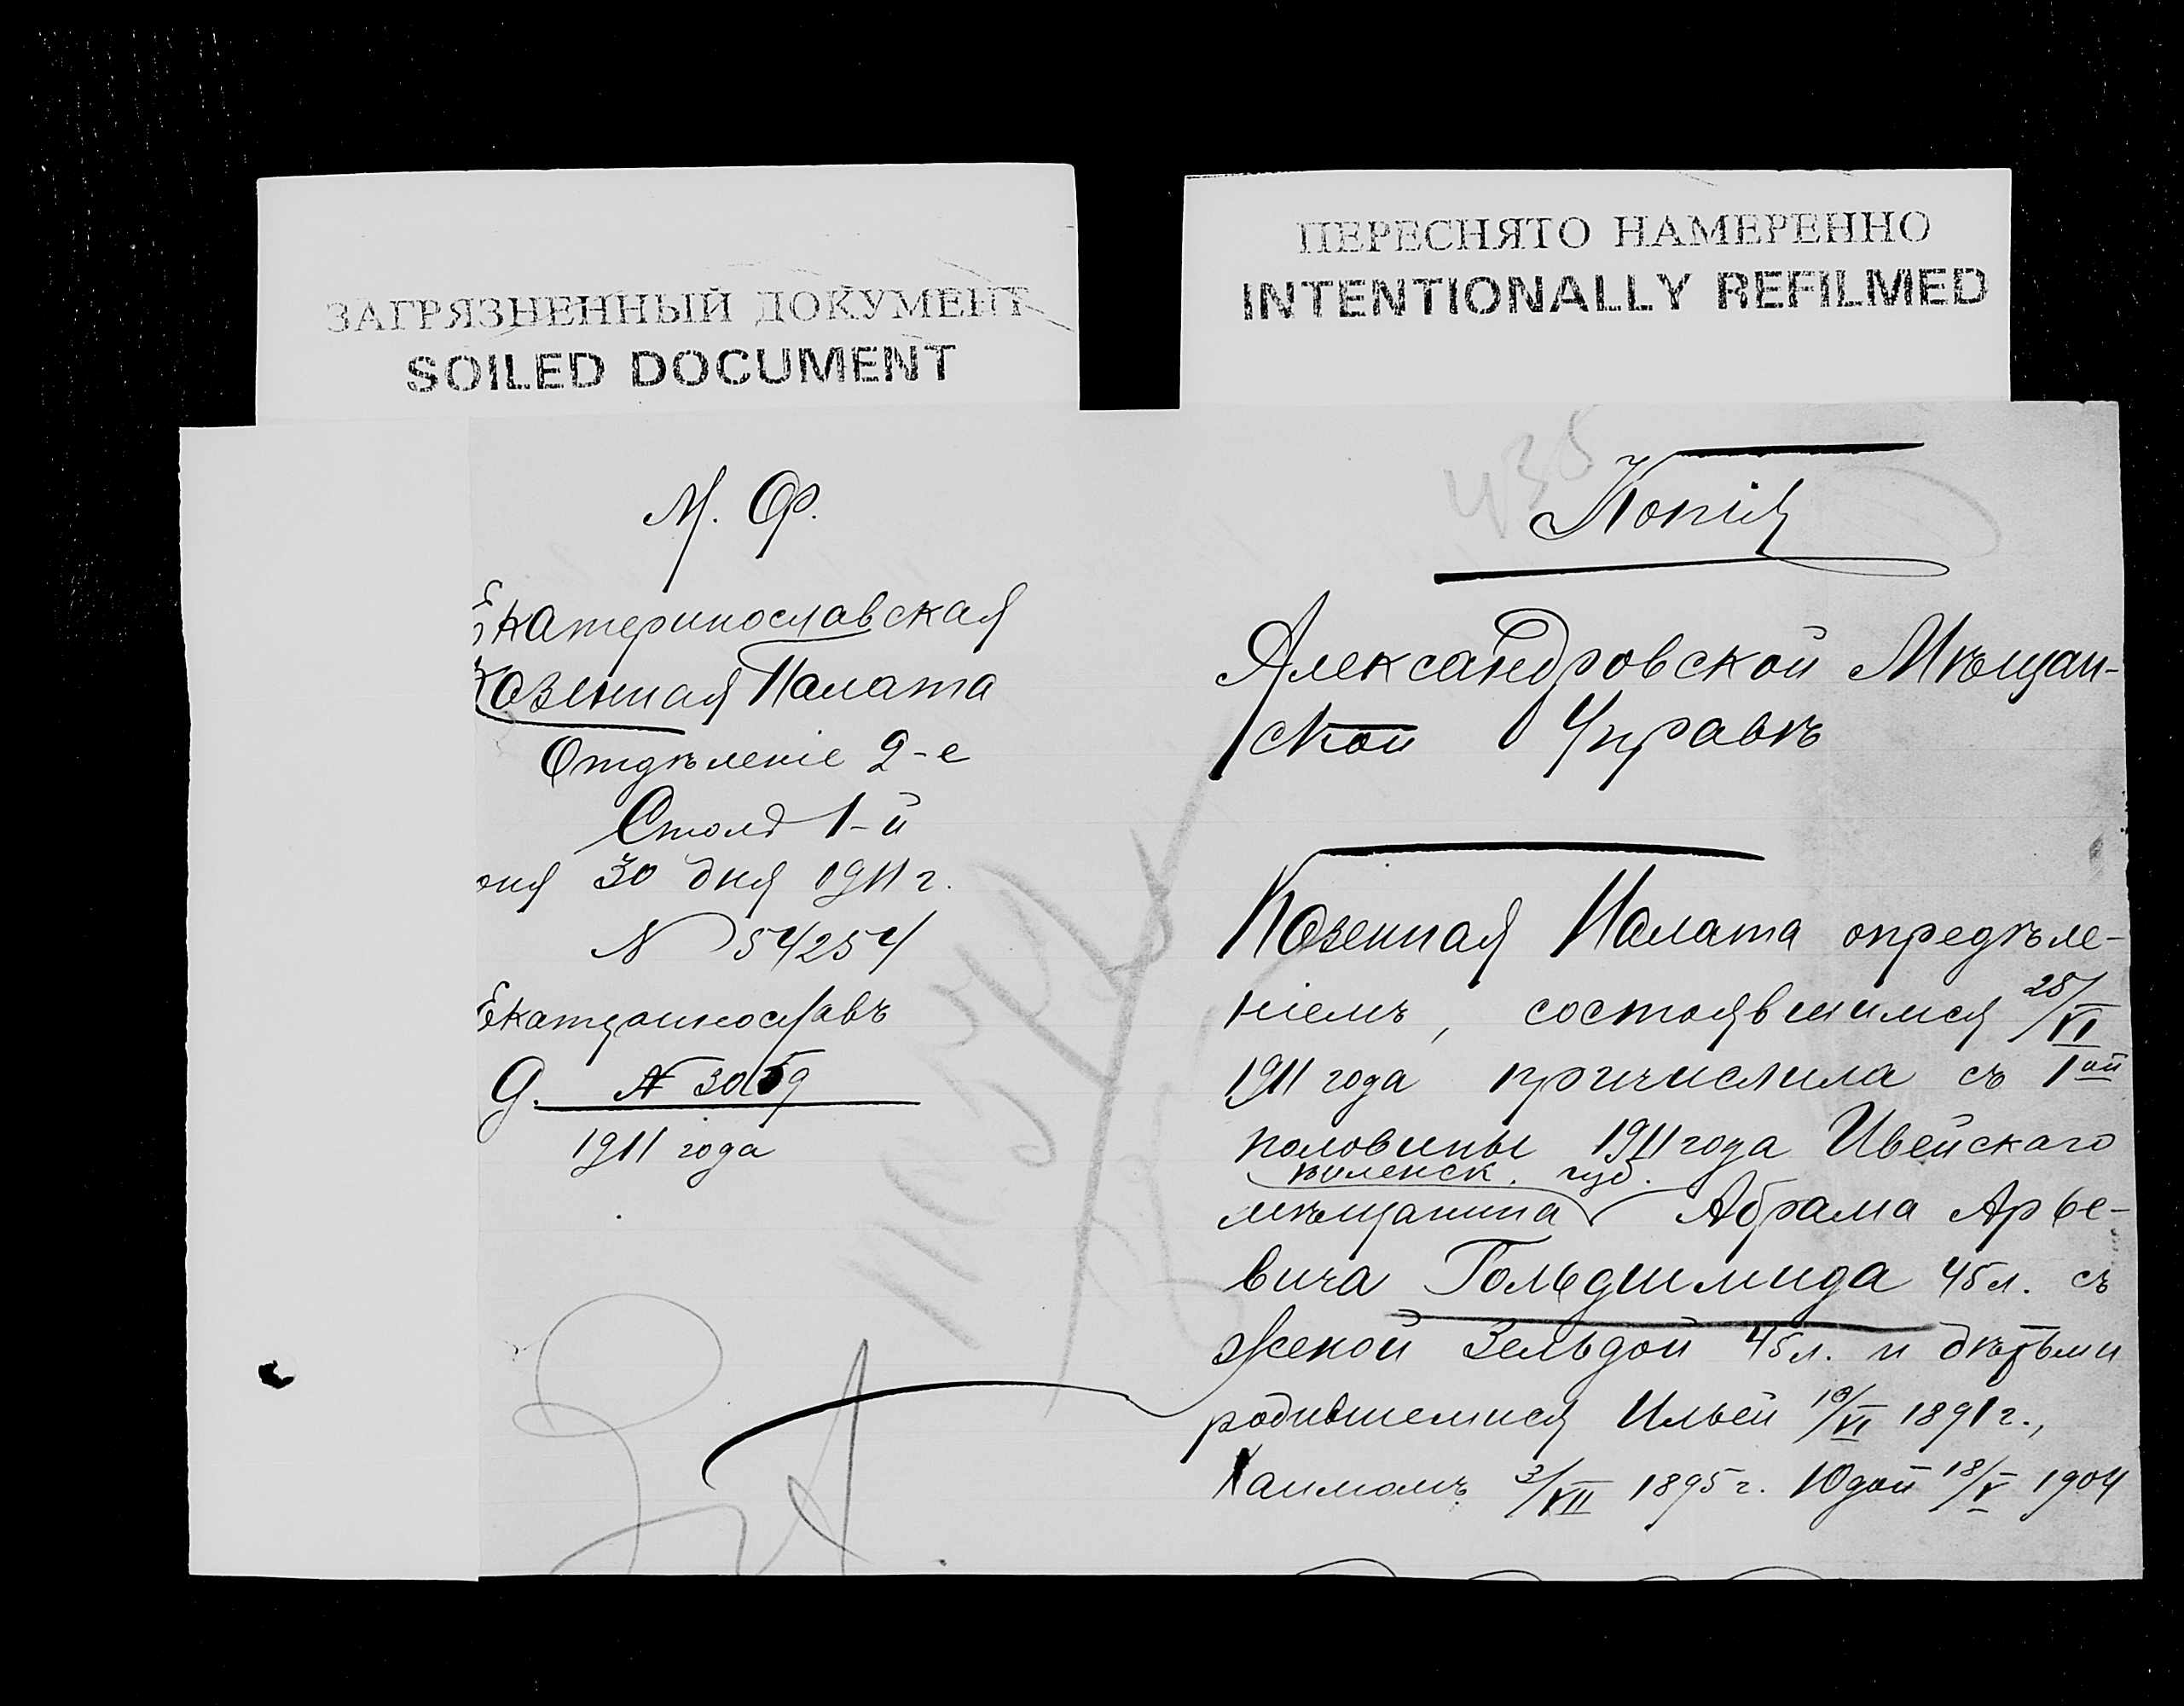 ЗАГРЯЗНЕННЫЙ ДОКУМЕНТ
SOILED DOCUMENT
ПЕРЕСНЯТО НАМЕРЕННО
INTENTIONALLY REFILMED
М. Ф.
Екатеринославская
Казенная Палата
Отдѣленіе 2-е
Столъ 1-й
юня 30 дня 1911 г.
№ 54254
Екатеринославъ
Д. № 3059
1911 года
435
Копія
Александровской Мѣщан-
ской Управѣ
Казенная Палата опредѣле-
ніемъ, состоявшимся 28/VI
1911 года причислила съ 1ой
половины 1911 года Ивейскаго
Виленск. губ.
мѣщанина Абрама Арье-
вича Гольдшмида 45 л. съ
женой Зельдой 45 л. и дѣтьми
родившемися Ильей 10/VI 1891 г.,
Хаимомъ 3/VII 1895 г. Юдой 18/V 1904